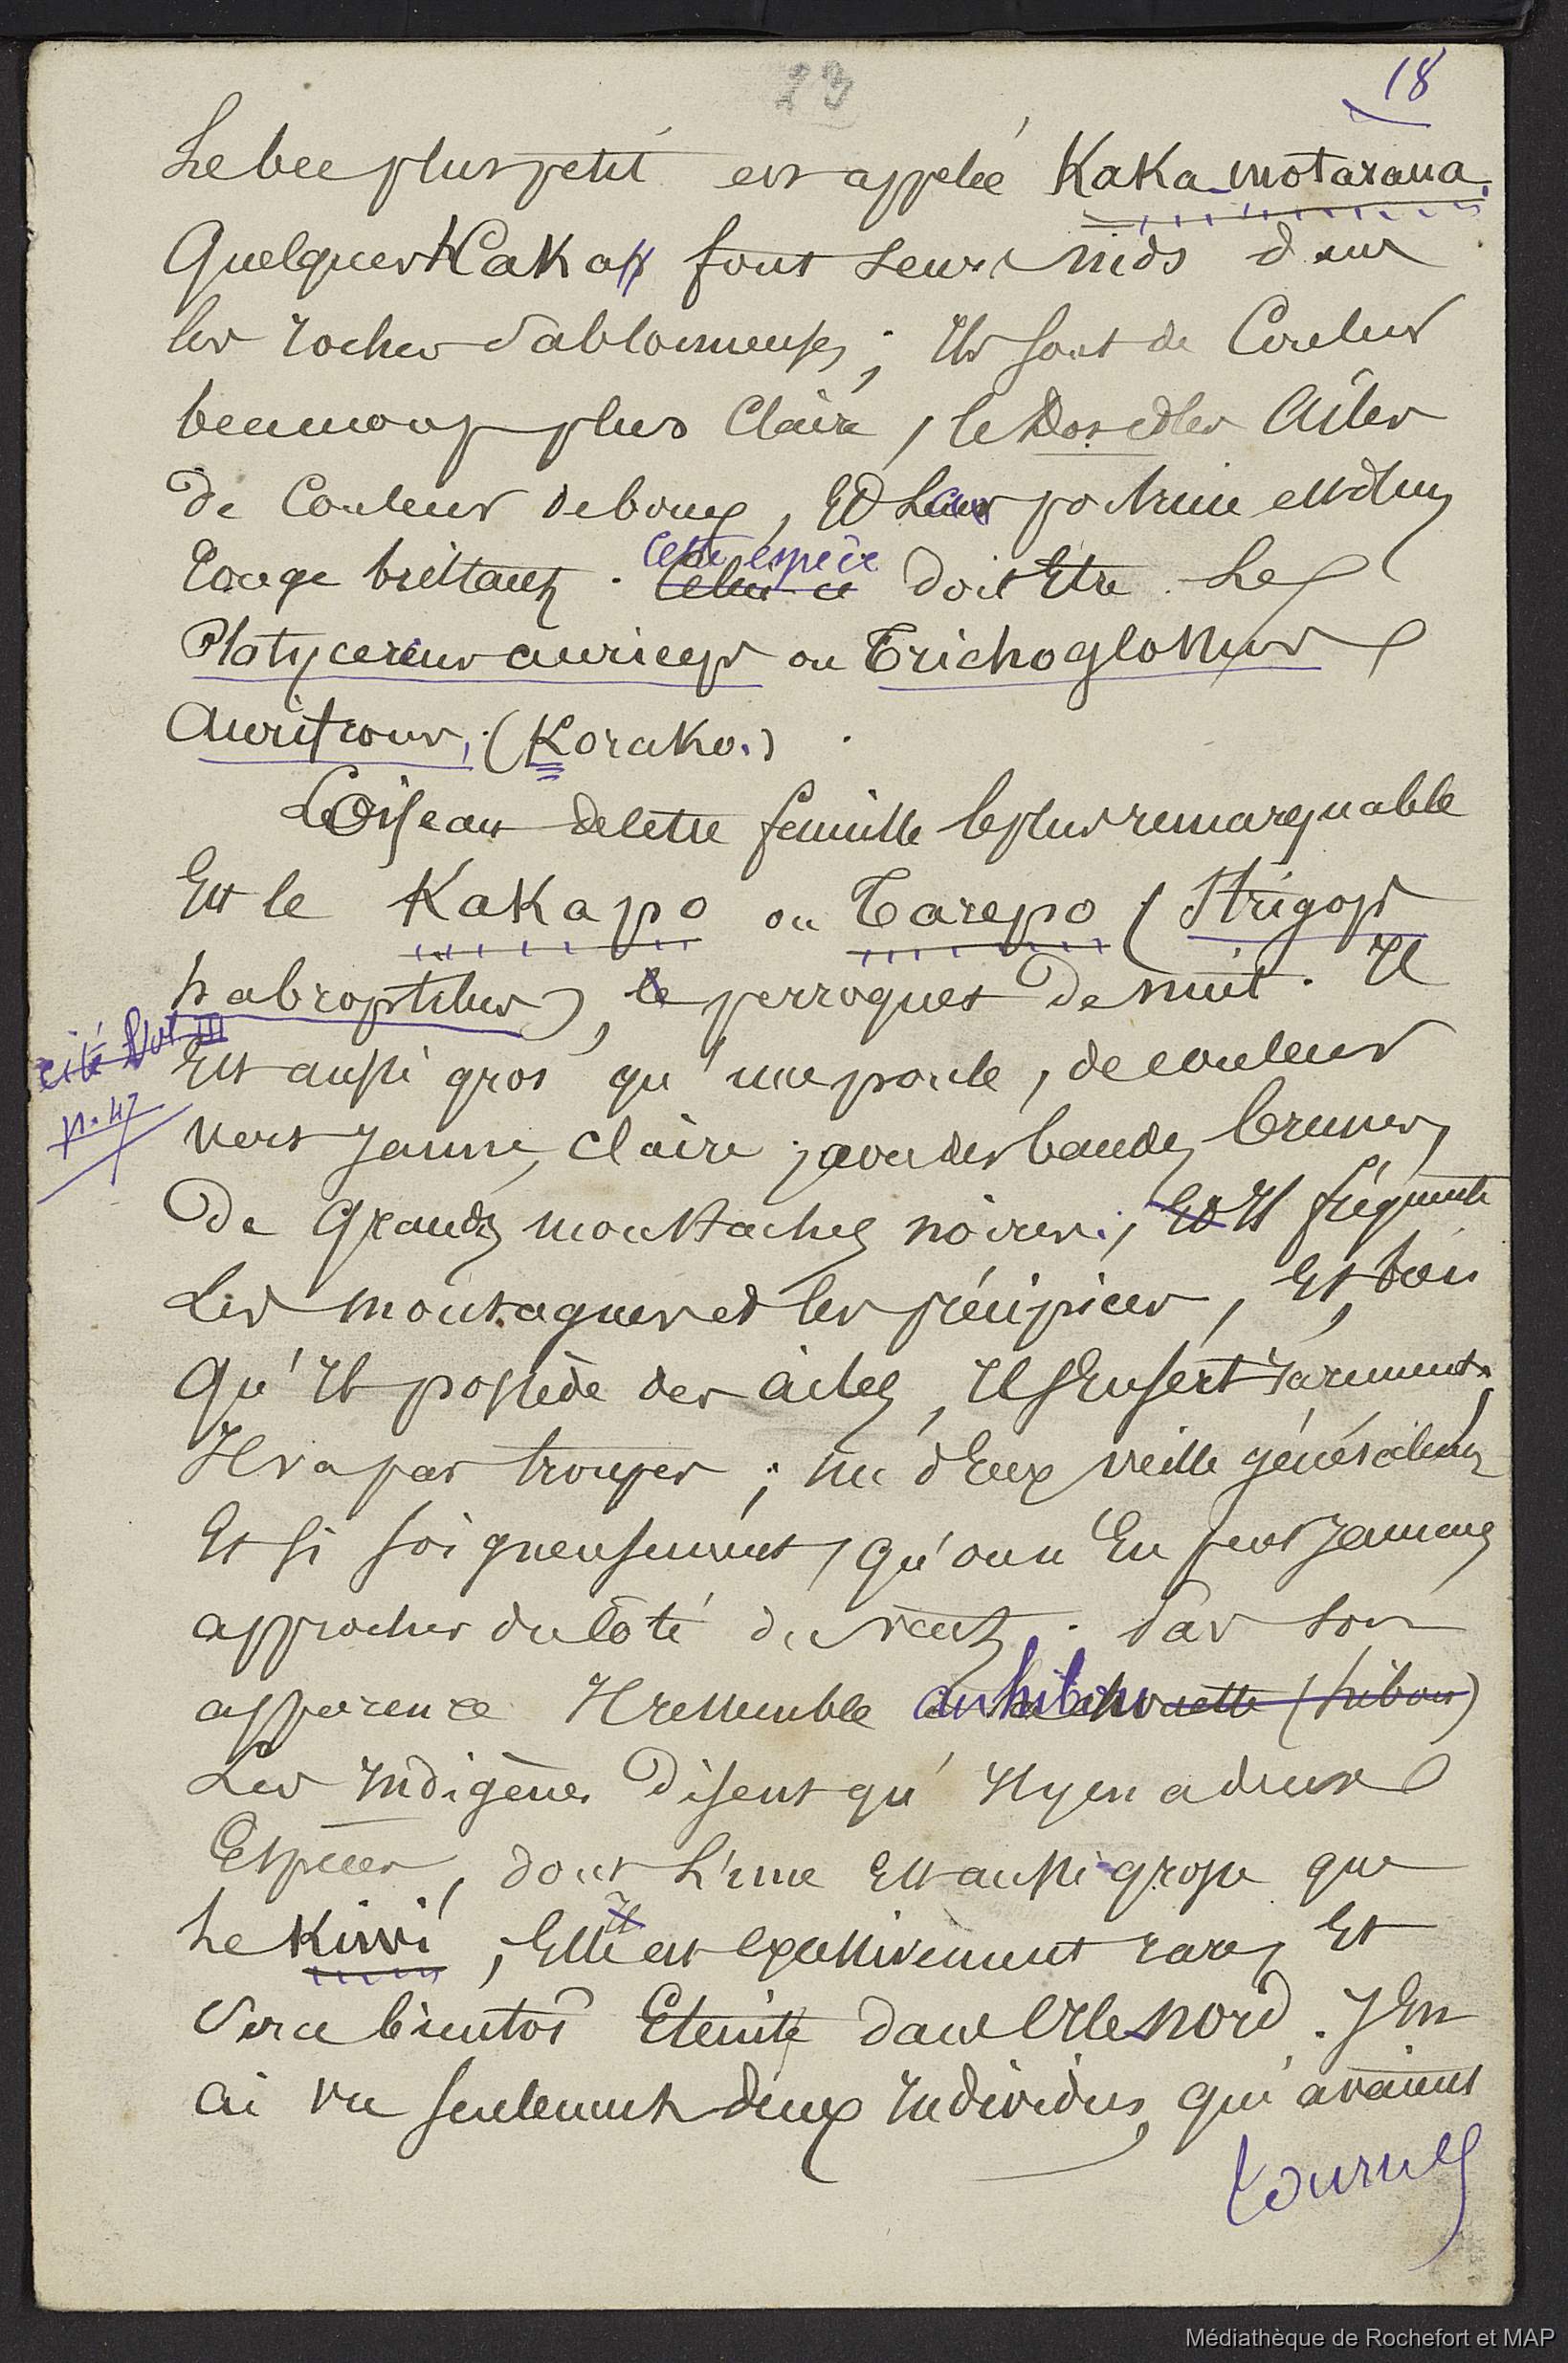 23
18
Le bec plus petit est appelé Kaka motarana.
Quelques Kaka font leurs nids dans
les roches sablonneuses ; Ils sont de Couleur
beaucoup plus Claire, le Dos et les Ailes
de Couleur de boue, Et leur poitrine est d'un
Rouge brillant. Celui-ci cette espèce doit Etre Le
Platycercus auriceps ou Trichoglossus
Aurifrons, (Korako.)
L'Oiseau de cette famille le plus remarquable
Est le KaKapo ou Tarepo (Strigops
habroptilus), le perroquet De nuit. Il
cité Vol III
p. 47
Est aussi gros qu'une poule, de couleur
vert Jaune, claire, avec des bandes brunes,
De Grandes moustaches noires ; Et Il fréquente
Les montagnes et les précipices, Et, bien
Qu'Il possède des ailes, Il s'En sert rarement.
Il va par troupes ; un d'Eux veille généralement
Et si soigneusement, Qu'on n'En peut Jamais
approcher du côté du vent. Par son
apparence Il ressemble au hibou chouette (hibou)
Les Indigènes Disent qu'Il y en a deux
Espèces, dont L'une Est aussi grosse que
Le Kiwi, Elle est excessivement rare, Et
Sera bientôt Eteinte dans l'Ile Nord. J'En
ai vu seulement deux Individus, qui avaient
tournez
Médiathèque de Rochefort et MAP